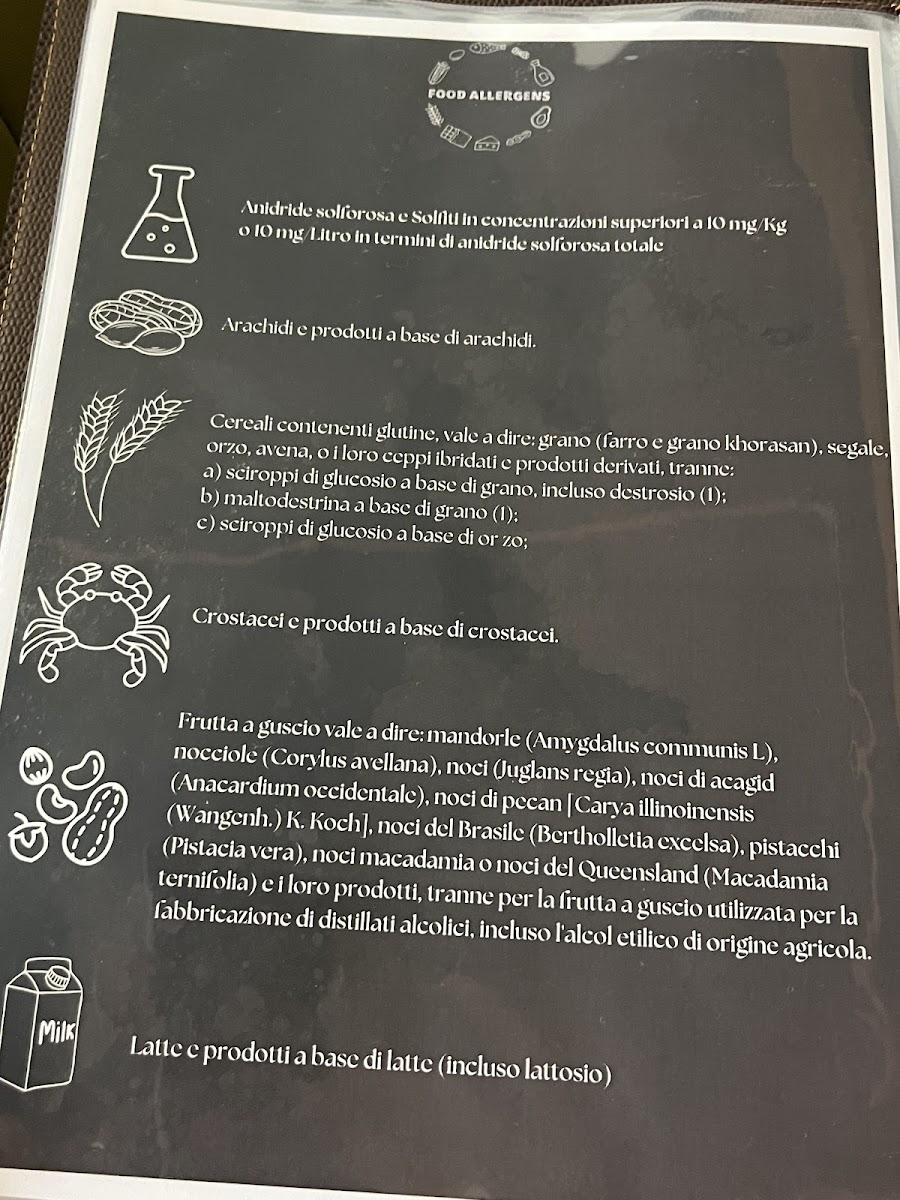 FOOD ALLERGENS
Anidride solforosa e Solfiti in concentrazioni superiori a 10 mg/Kg
o 10 mg/Litro in termini di anidride solforosa totale
Arachidi e prodotti a base di arachidi.
Cereali contenenti glutine, vale a dire: grano (farro e grano khorasan), segale,
orzo, avena, o i loro ceppi ibridati e prodotti derivati, tranne:
a) sciroppi di glucosio a base di grano, incluso destrosio (1);
b) maltodestrina a base di grano (1);
c) sciroppi di glucosio a base di or zo;
Crostacei e prodotti a base di crostacei.
Frutta a guscio vale a dire: mandorle (Amygdalus communis L),
nocciole (Corylus avellana), noci (Juglans regia), noci di acagid
(Anacardium occidentale), noci di pecan [Carya illinoinensis
(Wangenh.) K. Koch], noci del Brasile (Bertholletia excelsa), pistacchi
(Pistacia vera), noci macadamia o noci del Queensland (Macadamia
ternifolia) e i loro prodotti, tranne per la frutta a guscio utilizzata per la
fabbricazione di distillati alcolici, incluso l'alcol etilico di origine agricola.
Milk
Latte e prodotti a base di latte (incluso lattosio)